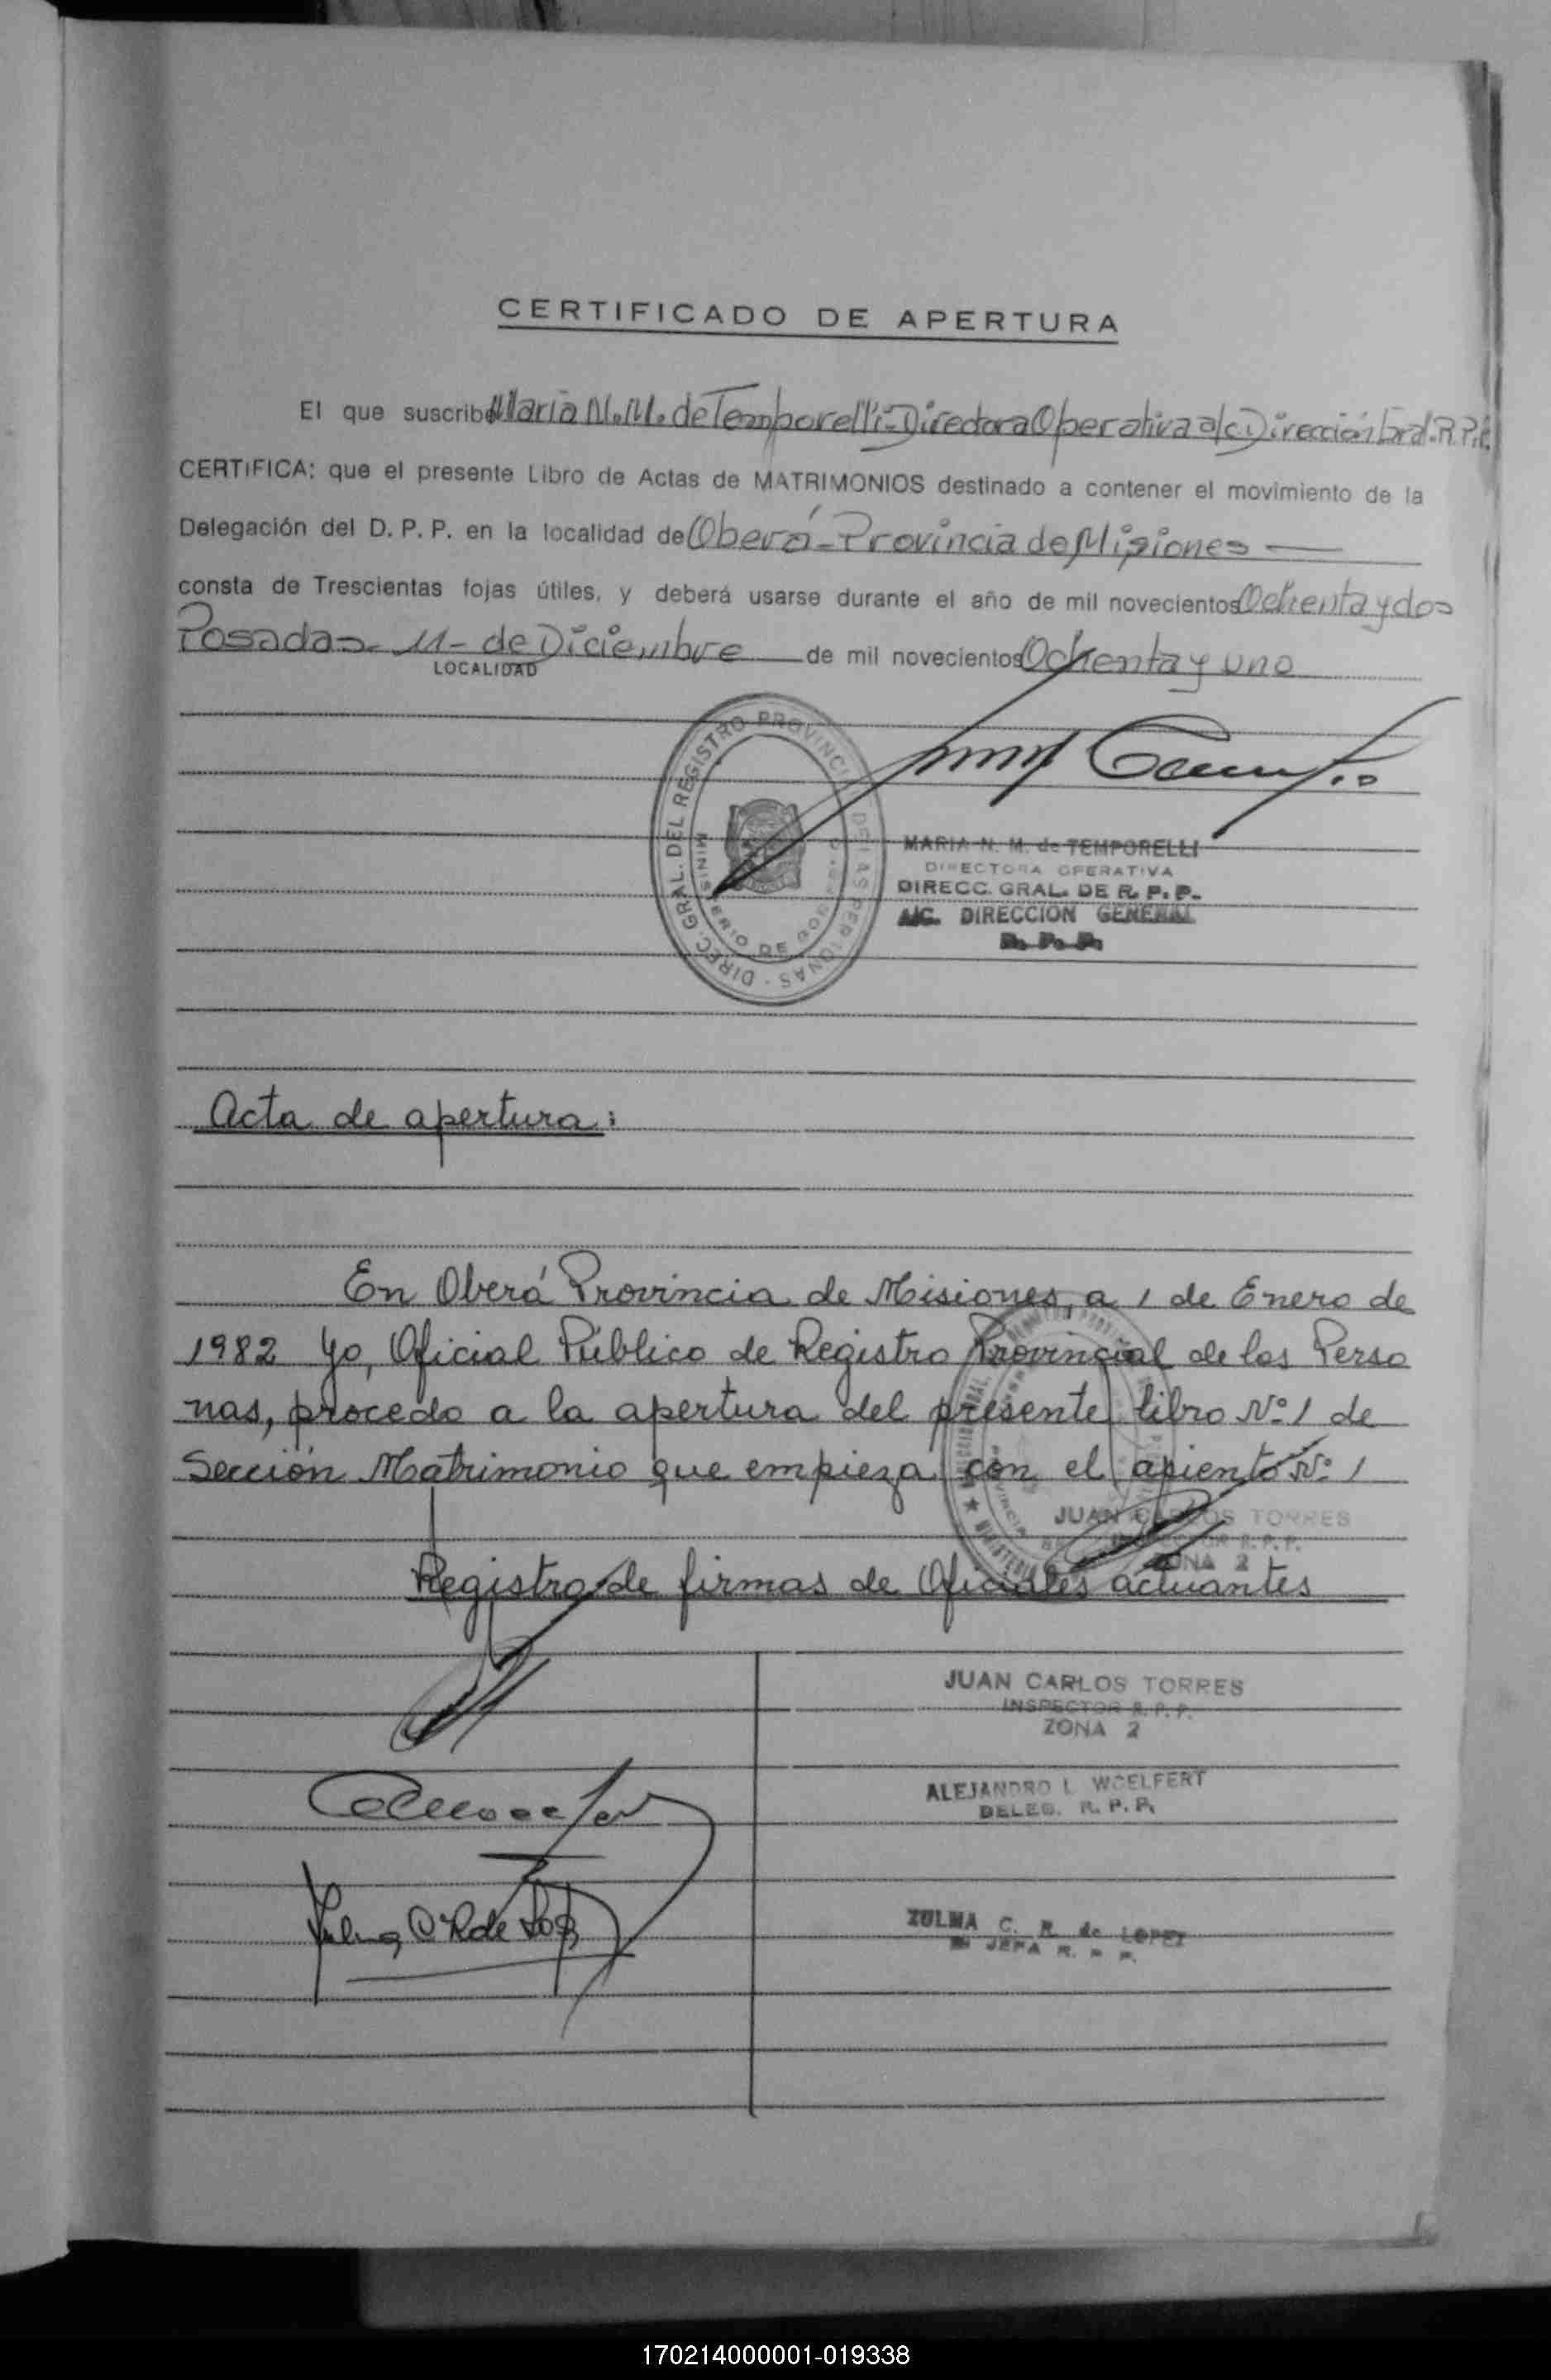 CERTIFICADO DE APERTURA
El que suscribe Maria N. M. de Temporelli - Directora Operativa a/c Dirección Gral. R. P. P.
CERTIFICA: que el presente Libro de Actas de MATRIMONIOS destinado a contener el movimiento de la
Delegación del D. P. P. en la localidad de Oberá - Provincia de Misiones —
consta de Trescientas fojas útiles, y deberá usarse durante el año de mil novecientos Ochenta y dos
Posadas - 11 - de Diciembre de mil novecientos Ochenta y uno
LOCALIDAD
DIREC. GRAL. DEL REGISTRO PROVINCIAL DE LAS PERSONAS -
MINISTERIO DE GOB
MARIA N. M. de TEMPORELLI
DIRECTORA OPERATIVA
DIRECC. GRAL. DE R. P. P.
A/C. DIRECCION GENERAL
R. P. P.
Acta de apertura:
En Oberá Provincia de Misiones, a 1 de Enero de
1982 Yo, Oficial Público de Registro Provincial de las Perso
nas, procedo a la apertura del presente libro Nº 1 de
Sección Matrimonio que empieza con el asiento Nº 1
JUAN CARLOS TORRES
INSPECTOR R. P. P.
ZONA 2
Registro de firmas de Oficiales actuantes
JUAN CARLOS TORRES
INSPECTOR R. P. P.
ZONA 2
ALEJANDRO L WOELFERT
DELEG. R. P. P.
Zulma C R de Lopez
ZULMA C. R. de LOPEZ
JEFA R. P. P.
170214000001-019338